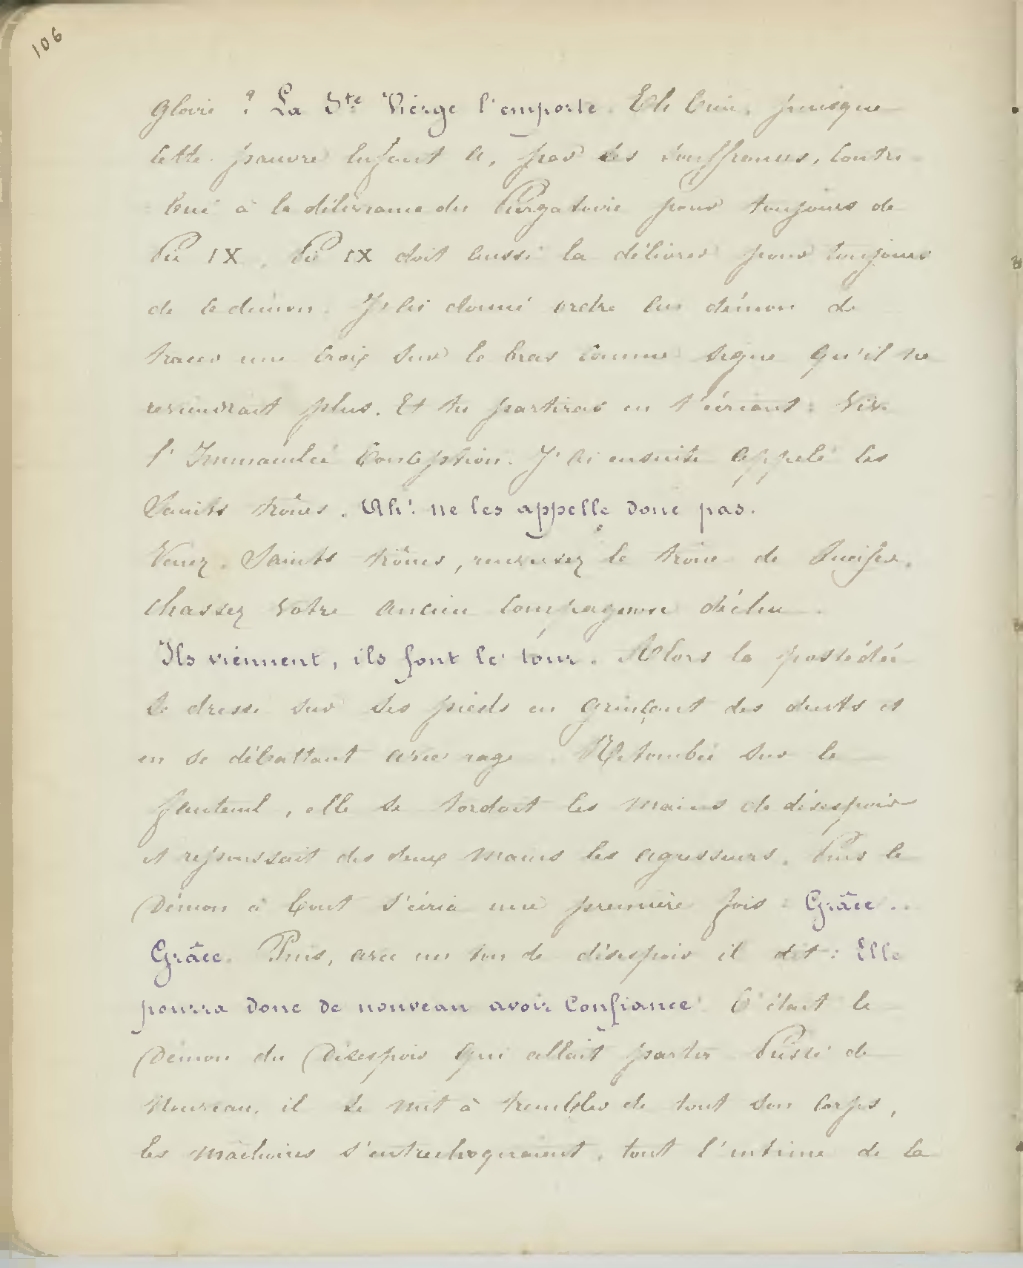 106
gloire ? La Ste Vierge l'emporte. Eh bien, puisque
cette pauvre enfant a, par ses souffrances, contri
bué à la délivrance du Purgatoire pour toujours de
Pie IX, Pie IX doit aussi la délivrer pour toujours
de ce démon. J'ai donné ordre au démon de
tracer une croix sur le bras comme signe qu'il ne
reviendrait plus. Et tu partiras en t'écriant : Vive
l'Immaculée Conception. J'ai ensuite appelé les
Saints trônes. Ah! ne les appelle donc pas.
Venez, Saints trônes, renversez le trône de Lucifer,
chassez votre ancien compagnon déchu.
Ils viennent, ils font le tour. Alors la possédée
se dresse sur ses pieds en grinçant des dents et
en se débattant avec rage. Retombée sur le
fauteuil, elle se tordait les mains de désespoir
et repoussait des deux mains les agresseurs. Puis le
Démon à bout s'écria une première fois : Grâce..
Grâce. Puis, avec un ton de désespoir il dit : Elle
pourra donc de nouveau avoir confiance. C'était le
Démon du Désespoir qui allait partir. Pressé de
nouveau, il se mit à trembler de tout son corps,
les mâchoires s'entrechoquaient, tout l'intime de la